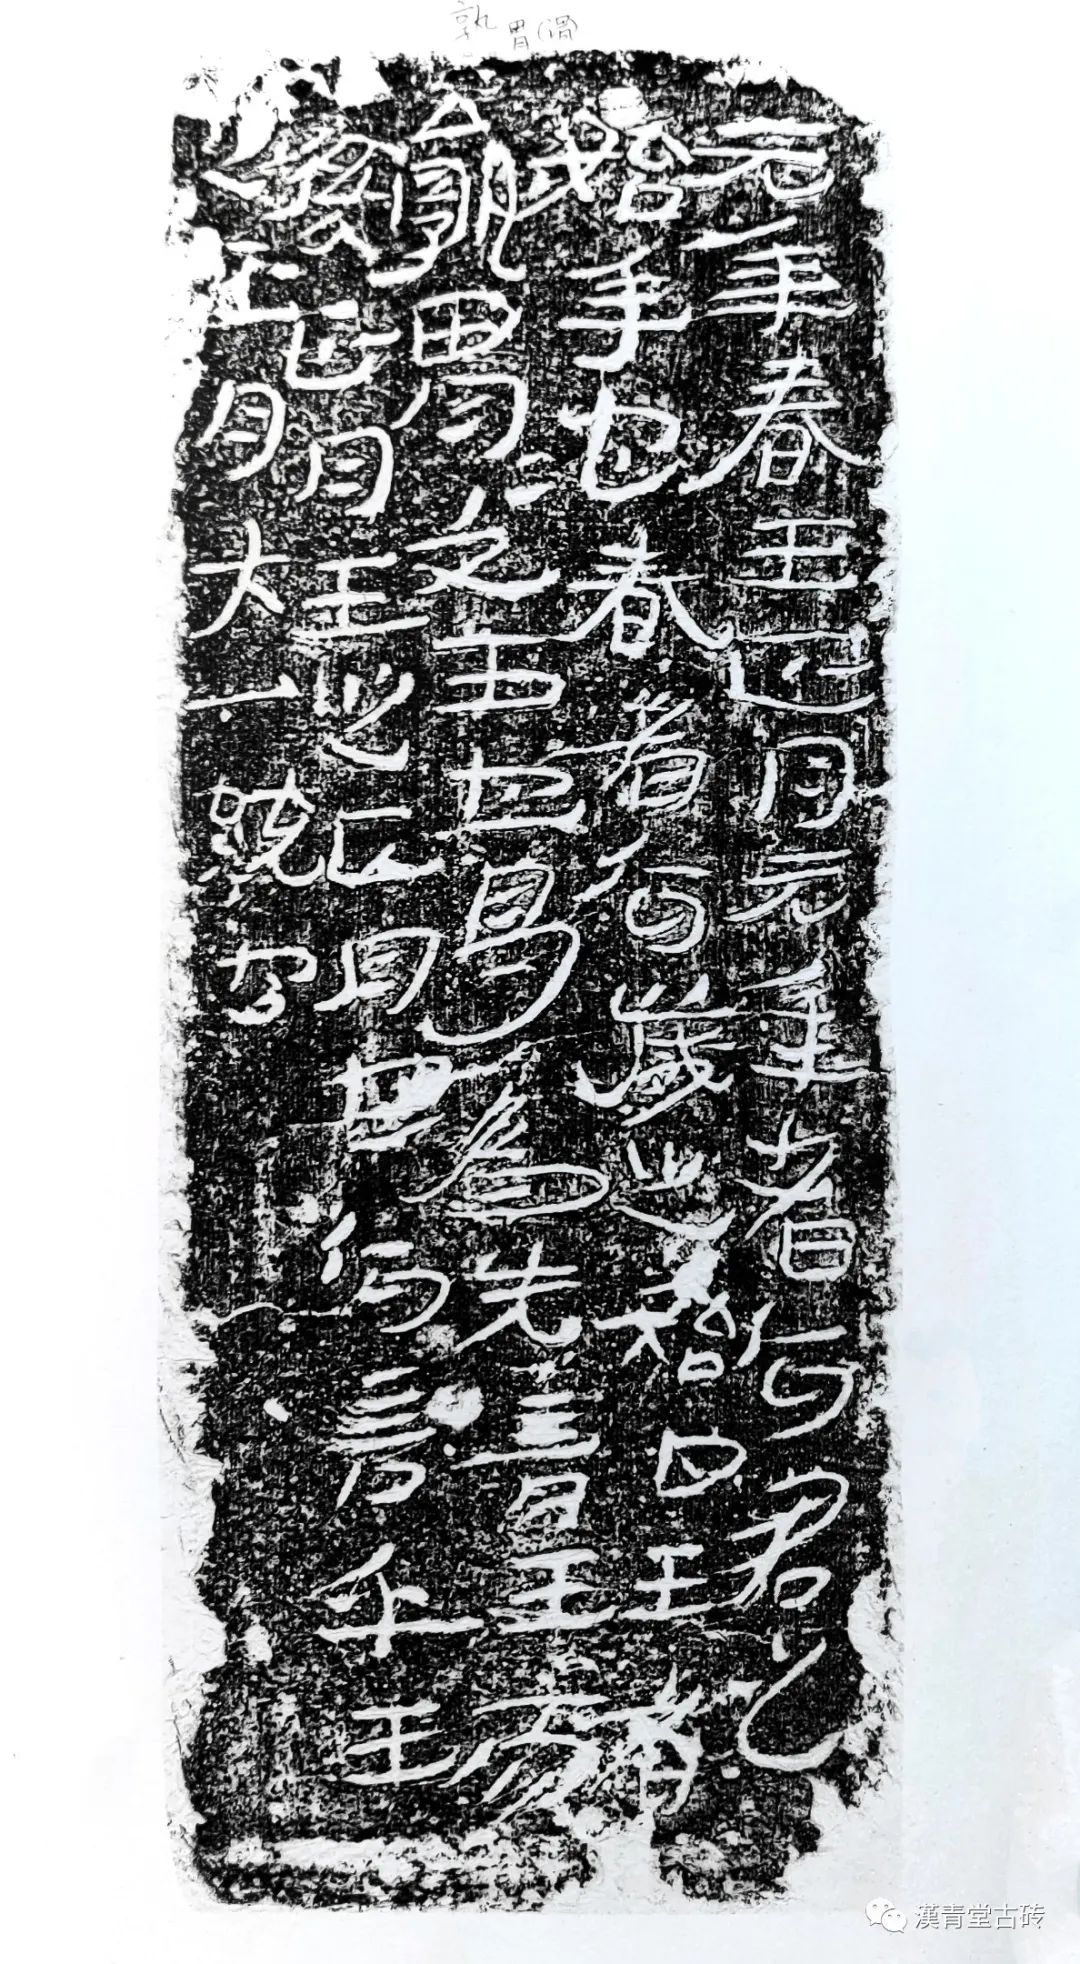 孰 胃(謂)
元年春王正月元年者何君之
始年也春者何歲之始也王者
孰胃=文王也曷為先言王而
後正月王之正月也何言乎王
正月大一統也
漢青堂古砖